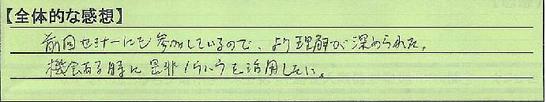 【全体的な感想】
前回セミナーにも参加しているので、より理解が深められた。
機会ある時に是非 を活用したい。